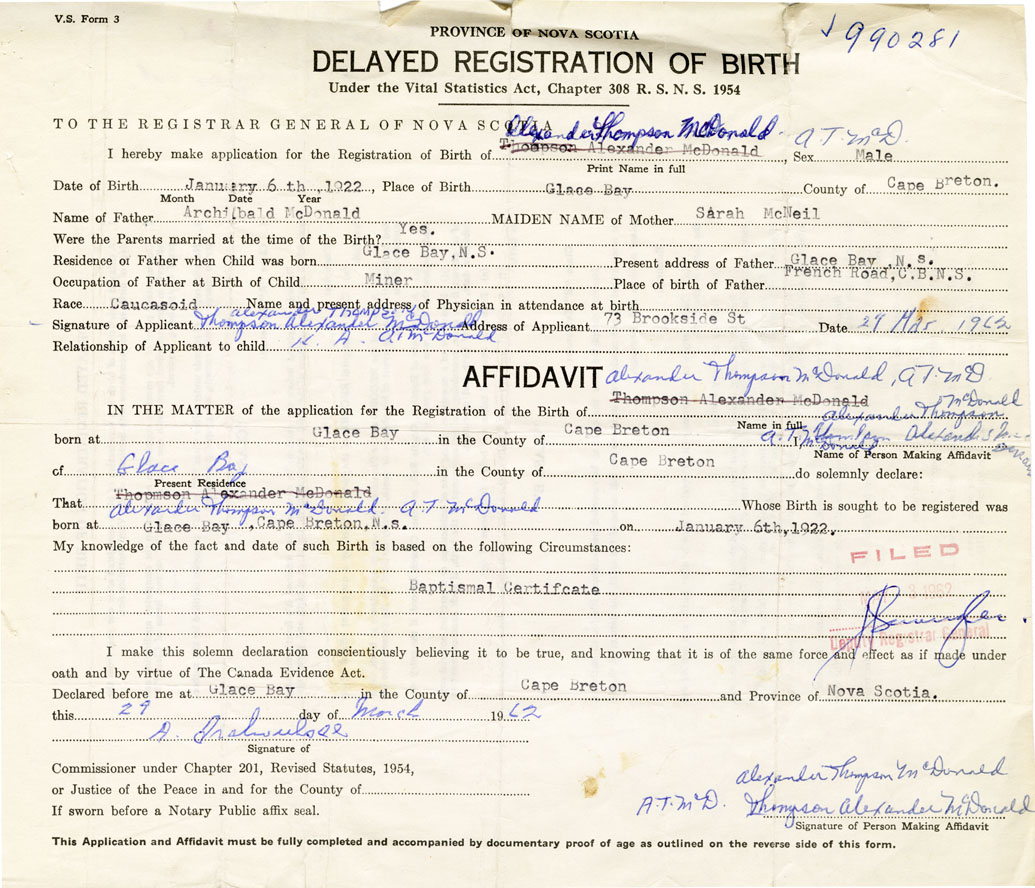 V.S. Form 3
PROVINCE OF NOVA SCOTIA
990281
DELAYED REGISTRATION OF BIRTH
Under the Vital Statistics Act, Chapter 308 R. S. N. S. 1954
TO THE REGISTRAR GENERAL OF NOVA SCOTIA
Alexander Thompson McDonald A.T. McD.
I hereby make application for the Registration of Birth of Thompson Alexander McDonald, Sex Male
Print Name in full
Date of Birth January 6 th ,1922, Place of Birth Glace Bay County of Cape Breton.
Month Date Year
Name of Father Archibald McDonald MAIDEN NAME of Mother Sarah McNeil
Were the Parents married at the time of the Birth? Yes.
Residence of Father when Child was born Glace Bay, N.S. Present address of Father Glace Bay, N.s.
Occupation of Father at Birth of Child Miner Place of birth of Father French Road, C.B.N.S.
Race Caucasoid Name and present address of Physician in attendance at birth
Alexander Thompson
Signature of Applicant Thompson Alexander McDonald Address of Applicant 73 Brookside St Date 29 Mar 1962
Relationship of Applicant to child A.T. McDonald
AFFIDAVIT Alexander Thompson McDonald, A.T. McD
IN THE MATTER of the application for the Registration of Birth of Thompson Alexander McDonald
McDonald
Alexander Thompson
born at Glace Bay in the County of Cape Breton Name in full I, A.T. McDonald Thompson Alexander
Name of Person Making Affidavit
of Glace Bay in the County of Cape Breton do solemnly declare:
Present Residence
Thopmson Alexander McDonald
That Alexander Thompson McDonald. A.T. McDonald Whose Birth is sought to be registered was
born at Glace Bay, Cape Breton, N.s. on January 6th, 1922.
My knowledge of the fact and date of such Birth is based on the following Circumstances:
FILED
Baptismal Certifcate
1962
Deputy Registrar General
I make this solemn declaration conscientiously believing it to be true, and knowing that it is of the same force and effect as if made under
oath and by virtue of The Canada Evidence Act.
Declared before me at Glace Bay in the County of Cape Breton and Province of Nova Scotia.
this 29 day of March 1962
A.
Signature of
Commissioner under Chapter 201, Revised Statutes, 1954,
or Justice of the Peace in and for the County of
If sworn before a Notary Public affix seal.
Alexander Thompson McDonald
A.T. McD. Thompson Alexander McDonald
Signature of Person Making Affidavit
This Application and Affidavit must be fully completed and accompanied by documentary proof of age as outlined on the reverse side of this form.